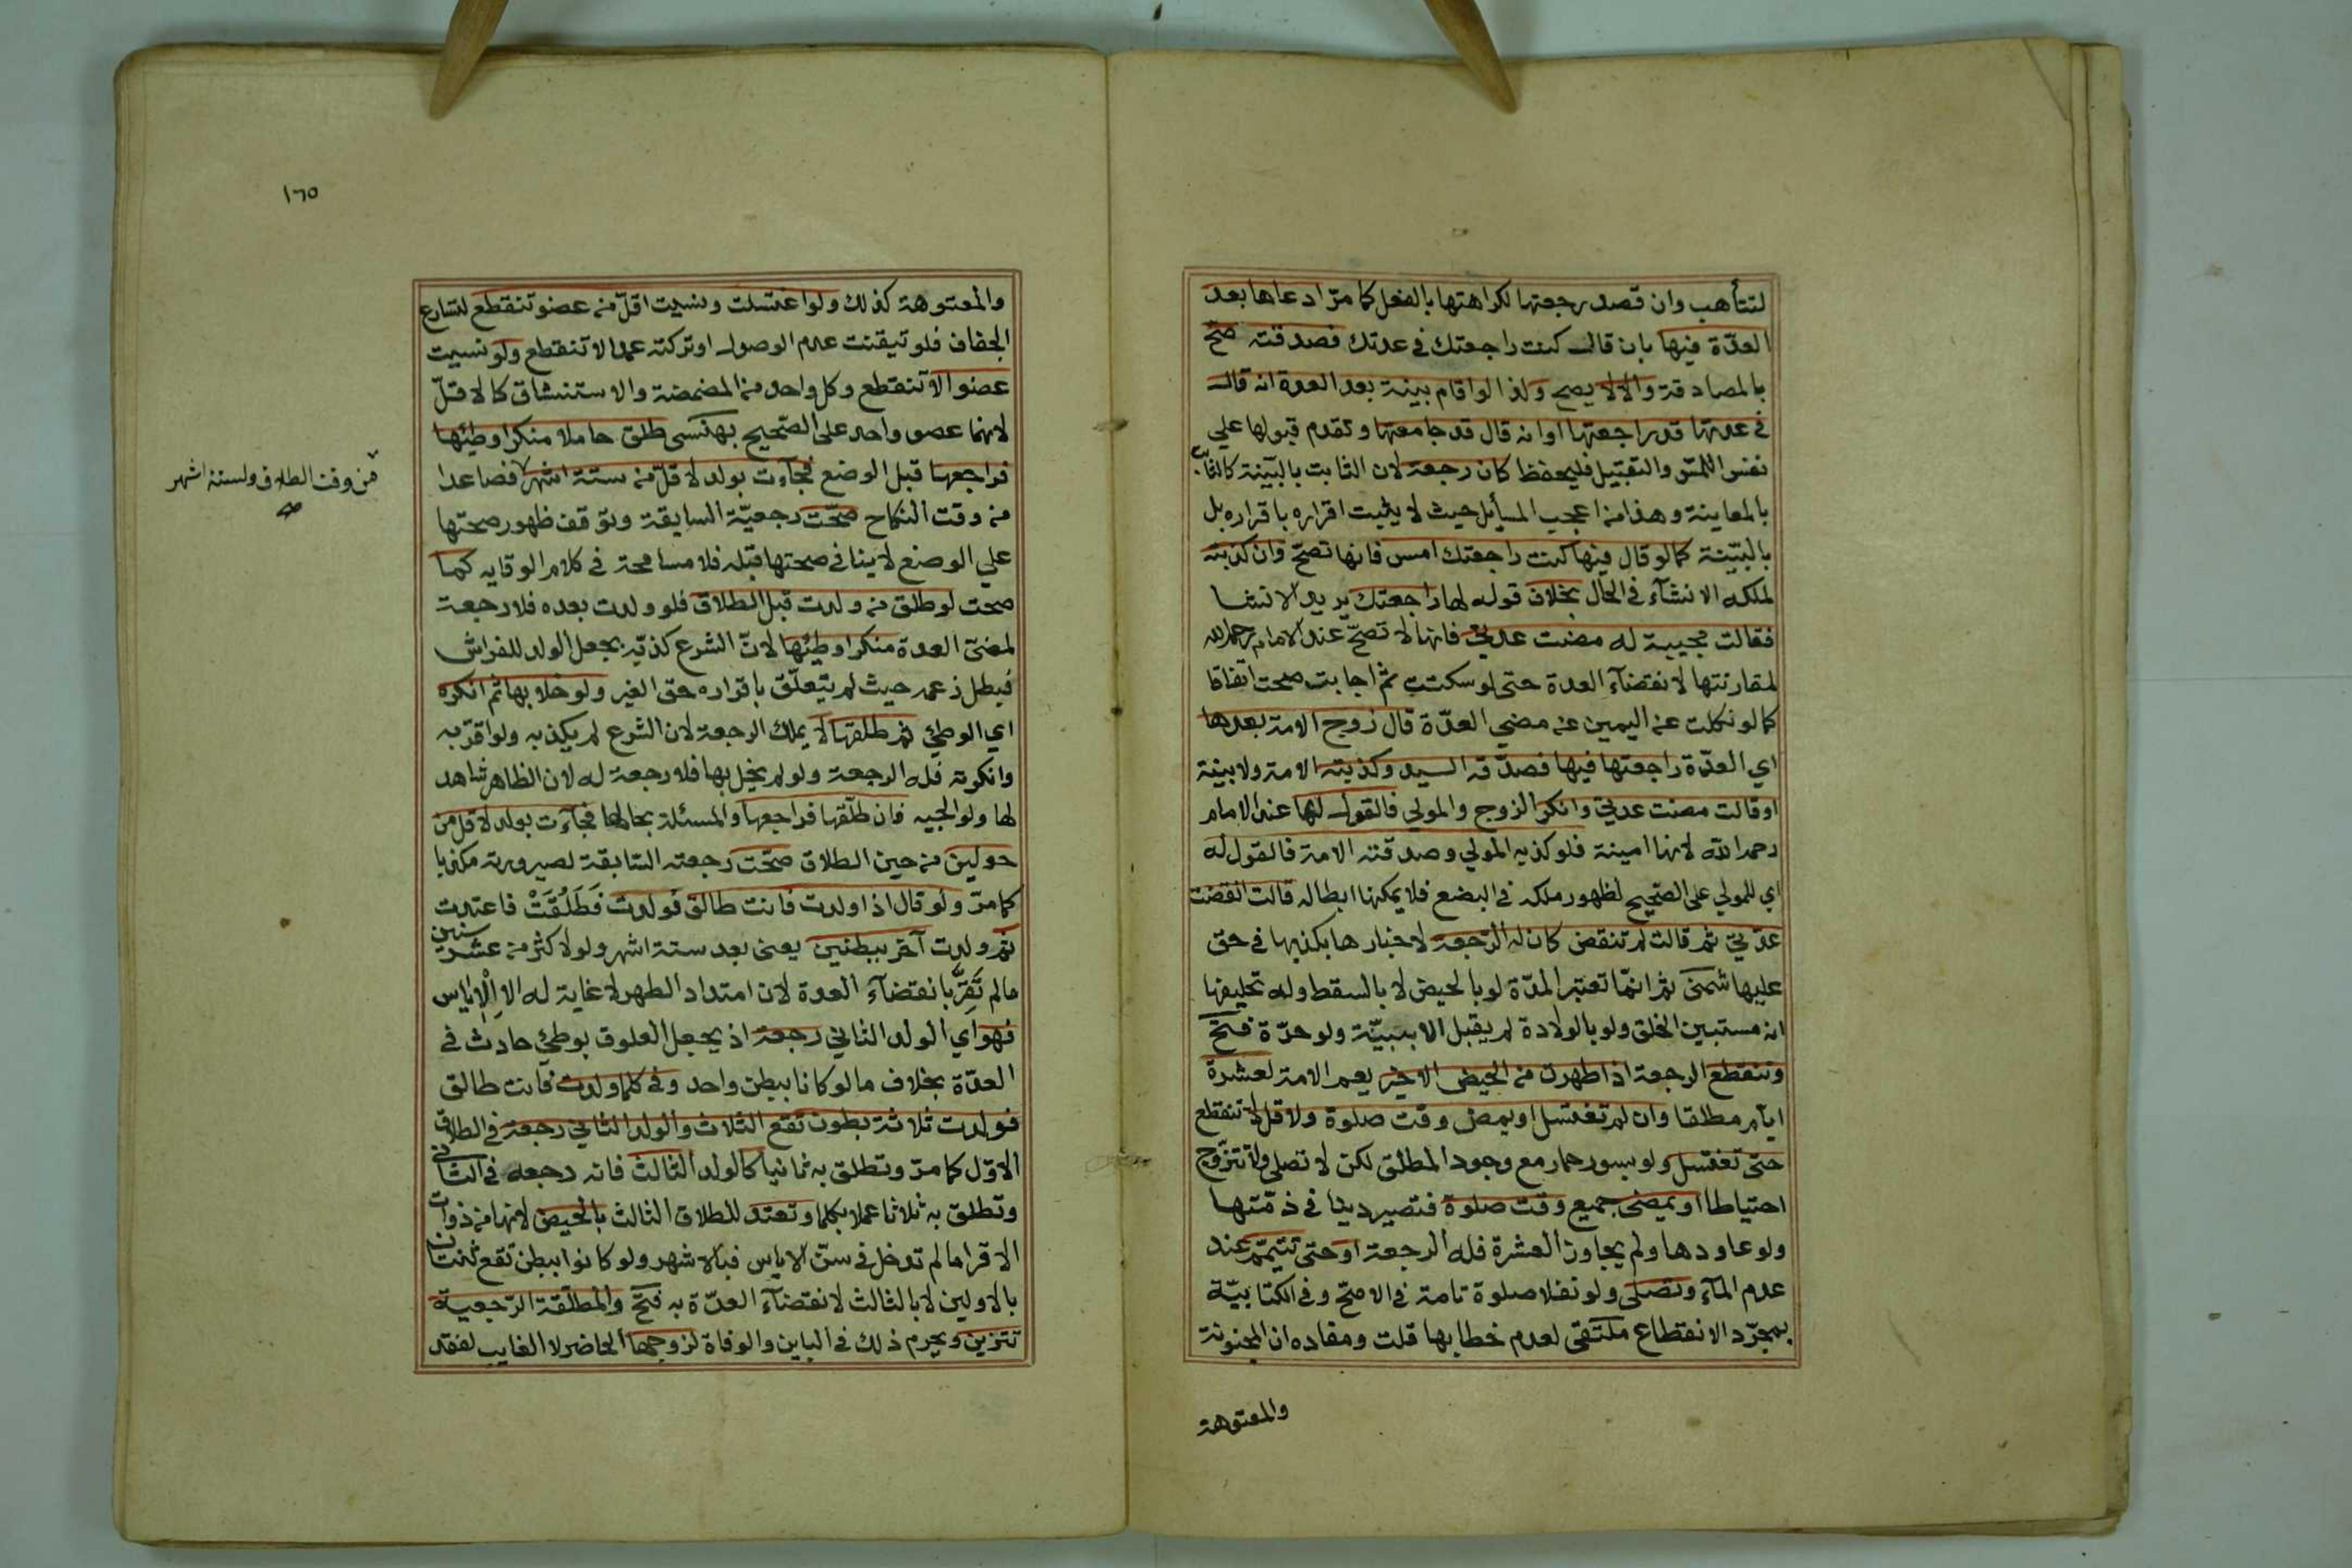 لتتأهب وان قصد رجعتها لكراهتها بالفعل كما مرّ ادعاها بعد
العدّة فيها بان قال كنت راجعتك في عدتك فصدقته صحّ
بالمصادقة والا لا يصح ولذا لو اقام بينة بعد العدة انه قال
في عدتها قد راجعتها او انه قال قد جامعتها وتقدم قبولها علي
نفس اللمس والتقبيل فليحفظ كان رجعة لان الثابت بالبيّنة كالثابت
بالمعاينة وهذا من اعجب المسأيل حيث لا يثبت اقراره باقراره بل
بالبيّنة كما لو قال فيها كنت راجعتك امس فانها تصحّ وان كذبته
لملكه الانشآء في الحال بخلاف قوله لها راجعتك يريد الانشا
فقالت مجيبة له مضت عدتي فانها لا تصحّ عند الامام رحمه الله
لمقارنتها لانقضآء العدة حتى لو سكتت ثم اجابت صحت اتفاقا
كما لو نكلت عن اليمين عن مضي العدّة قال زوج الامة بعدها
اي العدّة راجعتها فيها فصدّقه السيد وكذبته الامة ولا بينة
او قالت مضت عدتي وانكر الزوج والمولي فالقول لها عند الامام
رحمه الله لانها امينة فلو كذبه المولي وصدقته الامة فالقول له
اي للمولي على الصحيح لظهور ملكه في البضع فلا يمكنها ابطاله قالت انقضت
عدّتي ثم قالت لم تنقض كان له الرّجعة لاخبارها بكذبها في حق
عليها شمنى ثم انمّا تعتبر المدّة لو بالحيض لا بالسقط وله تحليفها
انه مستبين الخلق ولو بالولادة لم يقبل الا ببيّنة ولو حرّة فتح
وتنقطع الرجعة اذا طهرت من الحيض الاخير يعم الامة لعشرة
ايام مطلقا وان لم تغتسل او يمض وقت صلوة ولاقل لا تنقطع
حتى تغتسل ولو بسور حمار مع وجود المطلق لكن لا تصلي ولا تتزوّج
احتياطا او يمضى جميع وقت صلوة فتصير دينا في ذمّتها
ولو عاودها ولم يجاوز العشرة فله الرجعة او حتى تتيمّم عند
عدم المآء وتصلى ولو نفلا صلوة تامة في الاصحّ وفي الكتابيّة
بمجرّد الانقطاع ملتقى لعدم خطابها قلت ومفاده ان المجنونة
والمعتوهة
١٦٥
والمعتوهة كذلك ولو اغتسلت ونسيت اقلّ من عضو تنقطع لتسارع
الجفاف فلو تيقنت عدم الوصول او تركته عمدا لا تنقطع ولو نسيت
عضوا لا تنقطع وكل واحد من المضمضة والاستنشاق كالاقلّ
لانهما عضو واحد على الصّحيح بهنسى طلق حاملا منكرا وطئها
فراجعها قبل الوضع فجآءت بولد لاقلّ من ستة اشهر فصاعدا
من وقت النكاح صحّت رجعيّة السابقة وتوقف ظهور صحتها
علي الوضع لا ينافي صحتها قبله فلا مسامحة في كلام الوقايه كما
صحت لو طلق من ولدت قبل الطلاق فلو ولدت بعده فلا رجعة
لمضىّ العدة منكرا وطئها لانّ الشرع كذبّه بجعل الولد للفراش
فبطل زعمه حيث لم يتعلّق باقراره حق الغير ولو خلا بها ثم انكره
اي الوطئ ثم طلقها لا يملك الرجعة لان الشرع لم يكذبه ولو اقرّ به
وانكرته فله الرجعة ولو لم يخل بها فلا رجعة له لان الظاهر شاهد
لها ولوالجيه فان طلّقها فراجعها والمسئلة بحالها فجآءت بولد لاقل من
حولين من حين الطلاق صحّت رجعته السّابقة لصيرورته مكذبا
كما مرّ ولو قال اذا ولدت فانت طالق فولدت فَطَلُقَتْ فاعتدت
ثم ولدت آخر ببطنين يعنى بعد ستة اشهر ولو لاكثر من عشر سنين
مالم تَقِرَّ بانقضآء العدة لان امتداد الطهر لا غاية له الا الاياس
فهو اي الولد الثاني رجعة اذ يجعل العلوق بوطئ حادث في
العدّة بخلاف مالو كانا ببطن واحد وفي كلما ولدت فانت طالق
فولدت ثلاثة بطون تقع الثلاث والولد الثاني رجعة في الطلاق
الاوّل كما مرّ وتطلق به ثانيا كالولد الثالث فانه رجعة في الثاني
وتطلق به ثلاثا عملا بكلما وتعتد للطلاق الثالث بالحيض لانها من ذوات
الاقرا مالم تدخل في سنّ الاياس فبالاشهر ولو كانوا ببطن تقع ثنتان
بالاولين لا بالثالث لانقضآء العدّة به فتح والمطلّقة الرّجعية
تتزين ويحرم ذلك في الباين والوفاة لزوجها الحاضر لا الغايب لفقد
من وقت الطلاق ولستة اشهر
صح